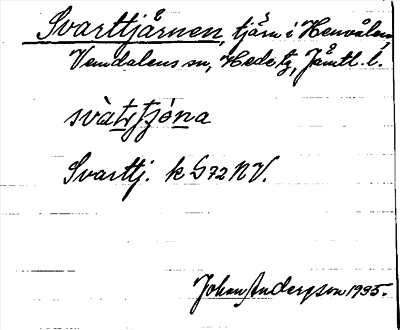 Svarttjärnen, tjärn i Henvålen,
Vemdalens sn, Hede tg, Jämtl. l.
svàtstjóna
Svarttj. k G 72 NV.
Johan Andersson 1935.